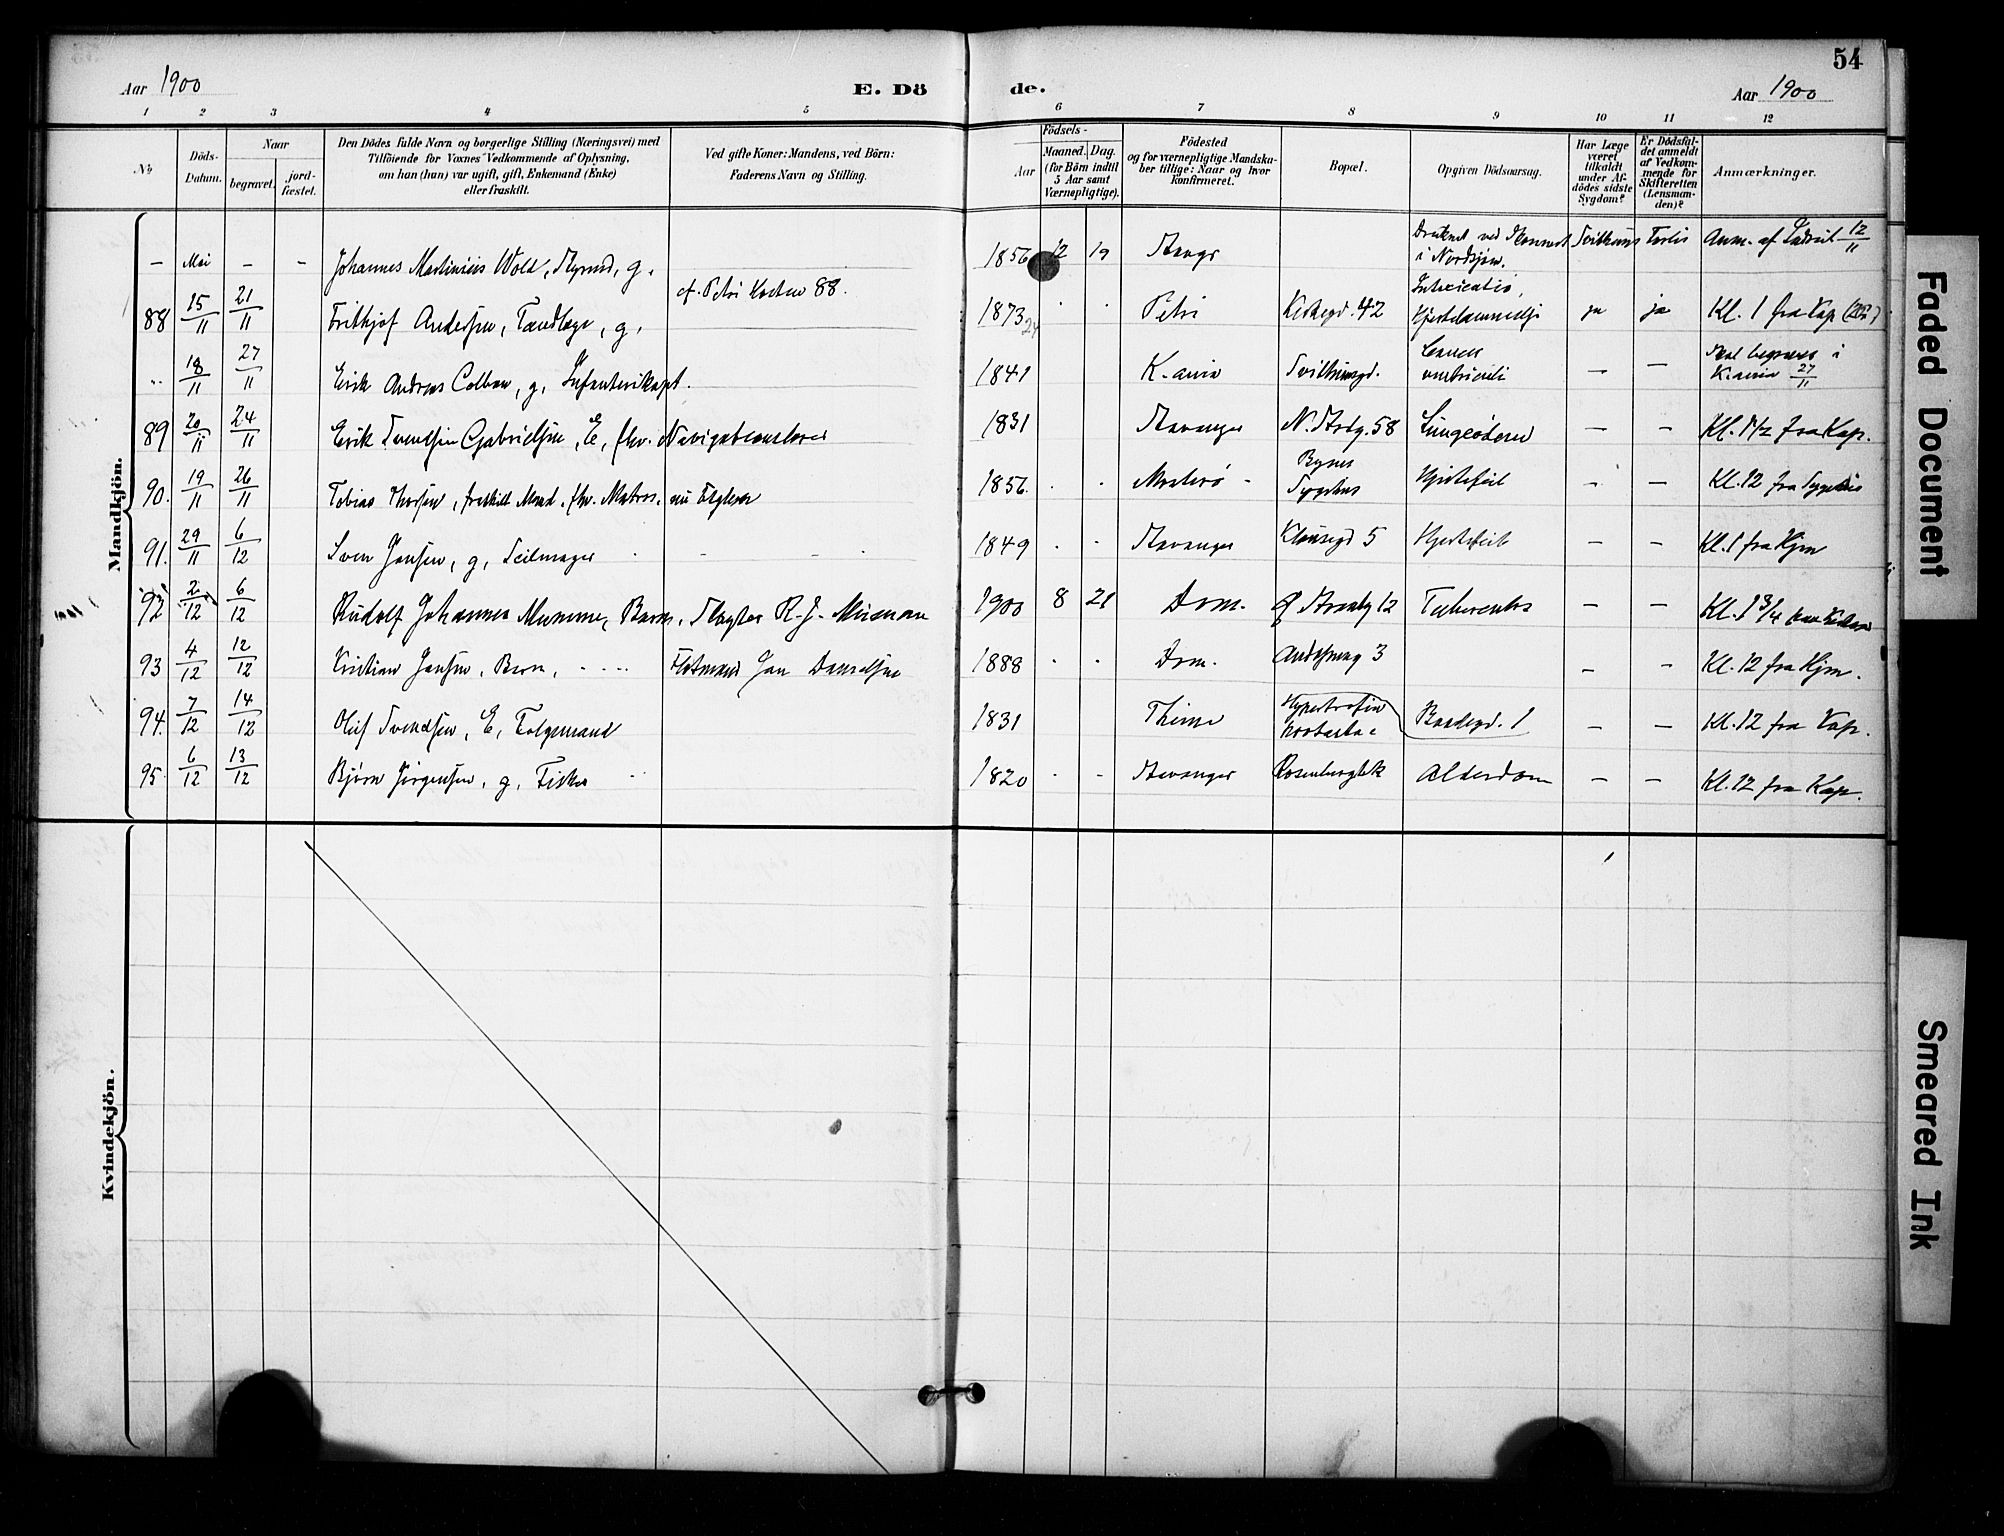 54
Aar 1900
E. Dö
de.
Aar 1900
1 2 3 4 5 6 7 8 9 10 11 12
No.
Döds-
Datum.
Naar
begravet.
jord-
fæstet.
Den Dödes fulde Navn og borgerlige Stilling (Næringsvei) med
Tilföiende for Voxnes Vedkommende af Oplysning,
om han (hun) var ugift, gift, Enkemand (Enke)
eller fraskilt.
Ved gifte Koner: Mandens, ved Börn:
Faderens Navn og Stilling.
Födsels-
Aar
Maaned.
Dag.
(for Börn indtil
5 Aar samt
Værnepligtige).
Födested
og for værnepligtige Mandska-
ber tillige: Naar og hvor
Konfirmeret.
Bopæl.
Opgiven Dödsaarsag.
Har Læge
været
tilkaldt
under Af-
dödes sidste
Sygdom?
Er Dödsfal-
det anmeldt
af Vedkom-
mende for
Skifteretten
(Lensman-
den)?
Anmærkninger.
Mandkjön.
— Mai — — Johannes Martinius Wold, Styrmd, g. 1856 12 19 Stavgr i Nordsjøen. Anm. af 12/11
88 15/11 21/11 Frithjof Andersen, Tandlæge, g. cf. Petri Kirken 88. 1873 Petri Kirkegd. 42 Intoxicatio, ja ja Kl. 1 fra Kap
" 18/11 27/11 Erik Andreas Colban, g, Infanterikapt. 1841 K.sund Svithunsgd. Cancer ventriculi — — Skal begraves i K.sund 27/11
89 20/11 24/11 Erik Svendsen Gabrielsen, E, fhv. Navigationslærer 1831 Stavanger N. Strdg. 58 Lungeødem — — Kl. 1 1/2 fra Kap.
90. 19/11 26/11 Tobias Thorsen, fraskilt Mand, fhv. Matros, nu 1856. Mosterø Byens Sygehus Hjertefeil - — Kl. 12 fra Sygehus
91. 29/11 6/12 Sven Jansen, g, Seilmager 1849 Stavanger Klausegd 5 Hjertefeil — — Kl. 1 fra Hjm
92 2/12 6/12 Rudolf Johannes Mumme, Barn, Slagter R. J. Mumme 1900 8 21 Dom. Ø Strandg 12 Tuberculos — — Kl. 1 3/4 paa Kirken
93 4/12 12/12 Kristian Jansen, Barn, Jan Danielsen 1888 Dom. 3 — — Kl. 12 fra Hjm.
94. 7/12 14/12 Oluf Svendsen, E, Følgemand 1831 Thime Hypertrofia prostatae Baadegd. 1 — — Kl. 12 fra Kap.
95. 6/12 13/12 Bjørn Jørgensen, g, Fisker 1820 Stavanger Rosenbergbk Alderdom — — Kl. 12 fra Kap.
Kvindekjön.
Faded Document
Smeared Ink